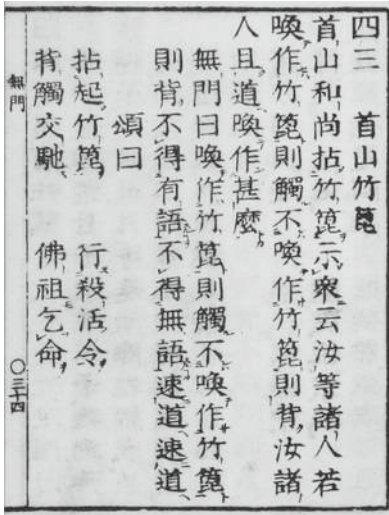 四三　首山竹篦
首山和尚拈竹篦示衆云汝等諸人若
喚作竹篦則觸不喚作竹篦則背汝諸
人且道喚作甚麼
無門曰喚作竹篦則觸不喚作竹篦
則背不得有語不得無語速道速道
頌曰
拈起竹篦　行殺活令
背觸交馳　佛祖乞命
無門　○三十四